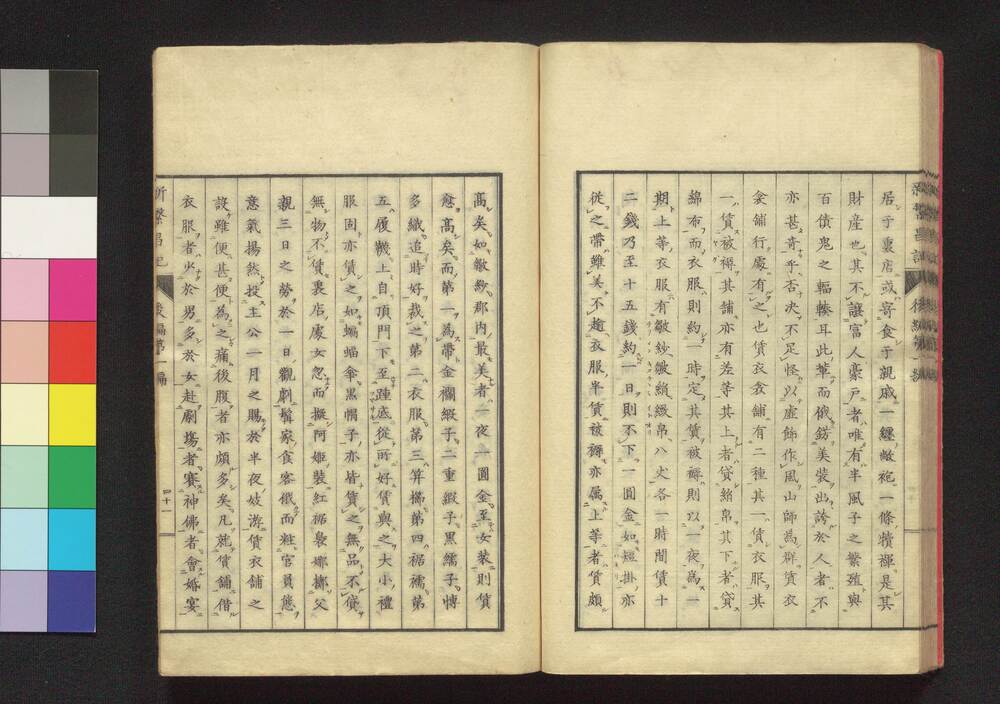 居于裏店或寄食于親戚一纏敝袍一條犢褌是其
財産也其不讓富人豪戸者唯有半風子之繁殖與
百債鬼之輻輳耳此輩而俄鐃美裝出誇於人者不
亦甚奇乎否决不足怪以虚飾作風山師爲群賃衣
衾舖行處有之也賃衣衾舖有二種其一賃衣服其
一賃被褥其舖亦有差等其上者貸絹帛其下者貸
綿布而衣服則約一時定其賃被褥則以一夜爲一
期上等衣服有皺紗皺絹緞帛八丈各一時間賃十
二錢乃至十五錢約一日則不下一圓金如短掛亦
從之帶雖美不趋衣服半賃被褥亦属上等者賃頗
高矣如皺紋那内最美者一夜一圓金至女裝則賃
愈高矣而第一爲帶金襴緞子二重緞子黒繻子博
多織追時好裁之第二衣服第三笄櫛第四裾襦第
五履襪上自頂門下至踵底從所好賃與之大小禮
服固亦賃之如蝙蝠傘黒帽子亦皆賃之無品不貸
無物不賃裏店處女忽而擬阿姫裝紅裾裊娜擲父
親三日之勞於一日觀劇鬅家食客俄而粧官員態
意氣揚然投主公一月之賜於半夜妓游賃衣舖之
設雖便甚便爲之痛後腹者亦頗多矣凡就賃舖借
衣服者少於男多於女赴劇場者賽神佛者會婚宴
新繁昌記 後編第一編
四十一